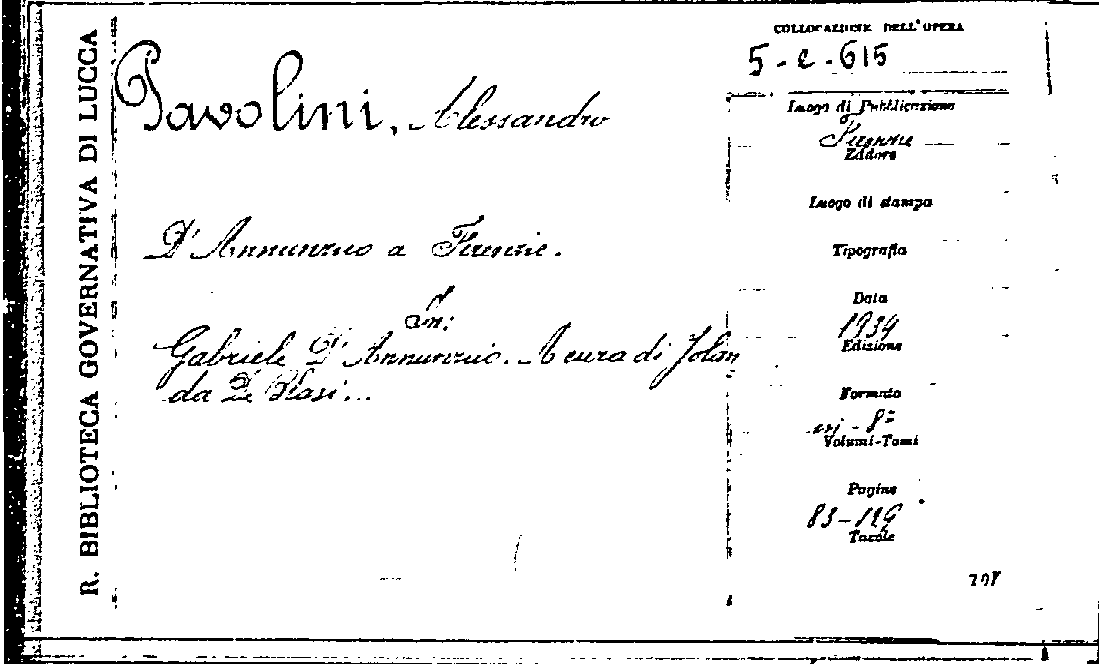 R. BIBLIOTECA GOVERNATIVA DI LUCCA
Pavolini, Alessandro
D'Annunzio a Firenze.
In:
Gabriele D'Annunzio. A cura di Jolan
da De Blasi...
COLLOCAZIONE DELL'OPERA
5-c-615
Luogo di Pubblicazione
Firenze
Editore
Luogo di stampa
Tipografia
Data
1939
Edizione
Formato
in-8º
Volumi-Tomi
Pagine
Tavole